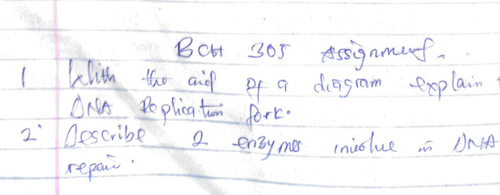 BCH 305 Assignment.
1 With the aid of a diagram explain
DNA Replication fork.
2 Describe 2 enzymes involve in DNA
repair.